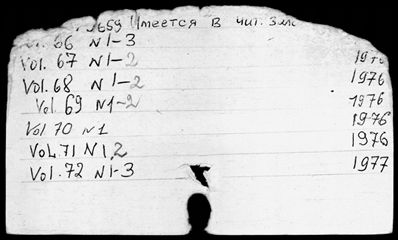 Имеется в чит.
Vol. 66 N 1-3
Vol. 67 N 1-2
Vol. 68 N 1-2 1976
Vol 69 N 1-2 1976
Vol 70 N 1 1976
Vol. 71 N 1,2 1976
Vol. 72 N 1-3 1977